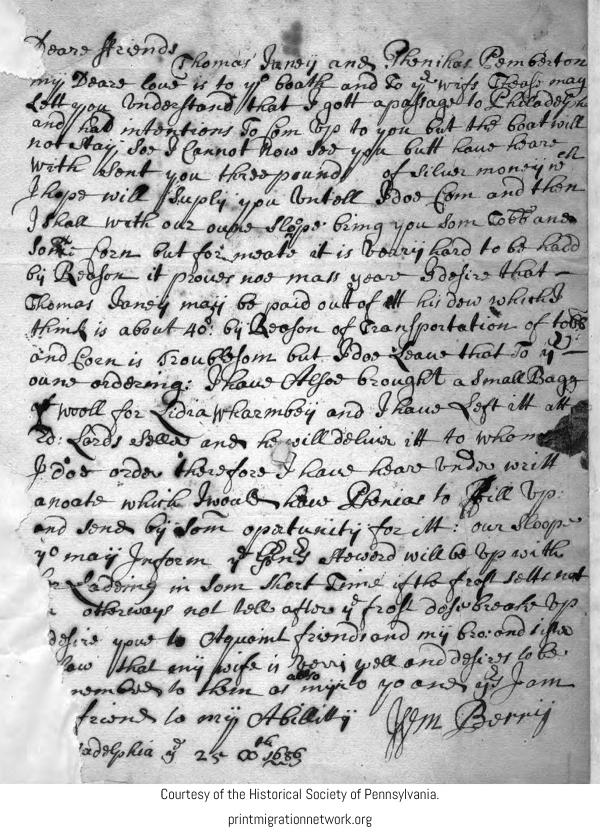 Deare ffriends
Thomas Janey and Phenihas Pemberton
my Deare love is to yo boath and to yr wifs These may
Lett you Understand that I gott apassage to Philadelph
and had intentions To Com Up to you but the boat will
not stay soe I Cannot Now See you butt have heare
With Sent you three pound of Silver money wch
I hope will Suply you Untell I doe Com and then
I shall with our owne Slope bring you Som Tobb and
Some Corn but for meate it is Veary hard to be hadd
by Reason it proves noe mass yeare I desire that
Thomas Janey may be paid out of itt his dew which I
think is about 40s by Reason of Transportation of tobb
and Corn is Troublsom but I doe Leave that To yr
owne ordering: I have Alsoe brought a Small Bagg
wooll for Lidia Wharmbey and I have Left itt att
Lords and he will deliver itt to whom
I doe order therefore I have heare Under writt
anoate which I woold have Phenias to fill Up
and send by Som opatunity for itt: our Sloope
yo may Inform yt Steword will be Up with
Ladding in Som Short Time if the frost setts not
otherways not tell after ye frost dose breake Up
desire youe to Aquaint friends and my bro: and sister
that my wife is Verri well and desires to be
to them as allso my to yo and yrs I am
friend to my Abillity Wm Berry
adelphia ye 25 th 1686
Courtesy of the Historical Society of Pennsylvania.
printmigrationnetwork.org